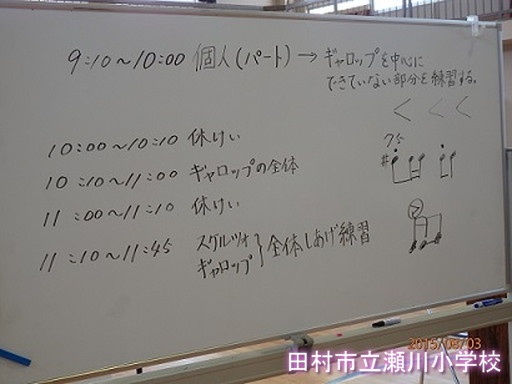 9:10～10:00 個人(パート) → ギャロップを中心に
できていない部分を練習する。
10:00～10:10 休けい
10:10～11:00 ギャロップの全体
11:00～11:10 休けい
11:10～11:45 スケルツォ
ギャロップ } 全体しあげ練習
2015/03/03
田村市立瀬川小学校